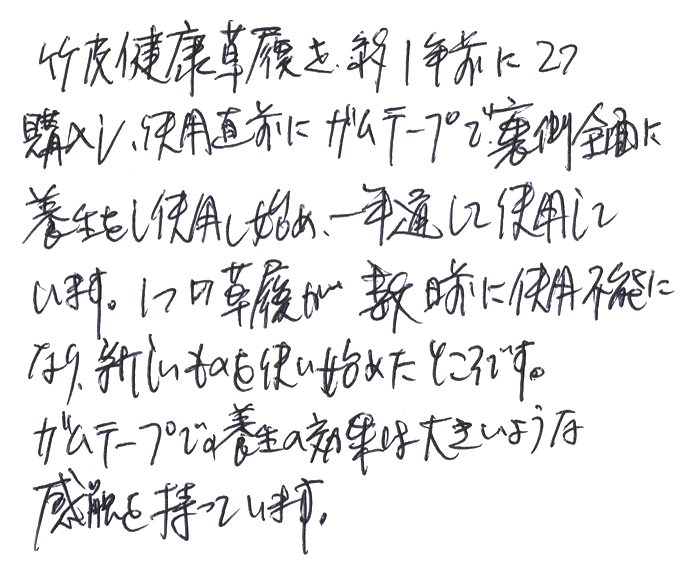 竹皮健康草履を、約1年前に2つ
購入し、使用直前にガムテープで裏側全面に
養生をし使用し始め、一年通して使用して
います。1つの草履が数日前に使用不能に
なり、新しいものを使い始めたところです。
ガムテープでの養生の効果は大きいような
感触を持っています。